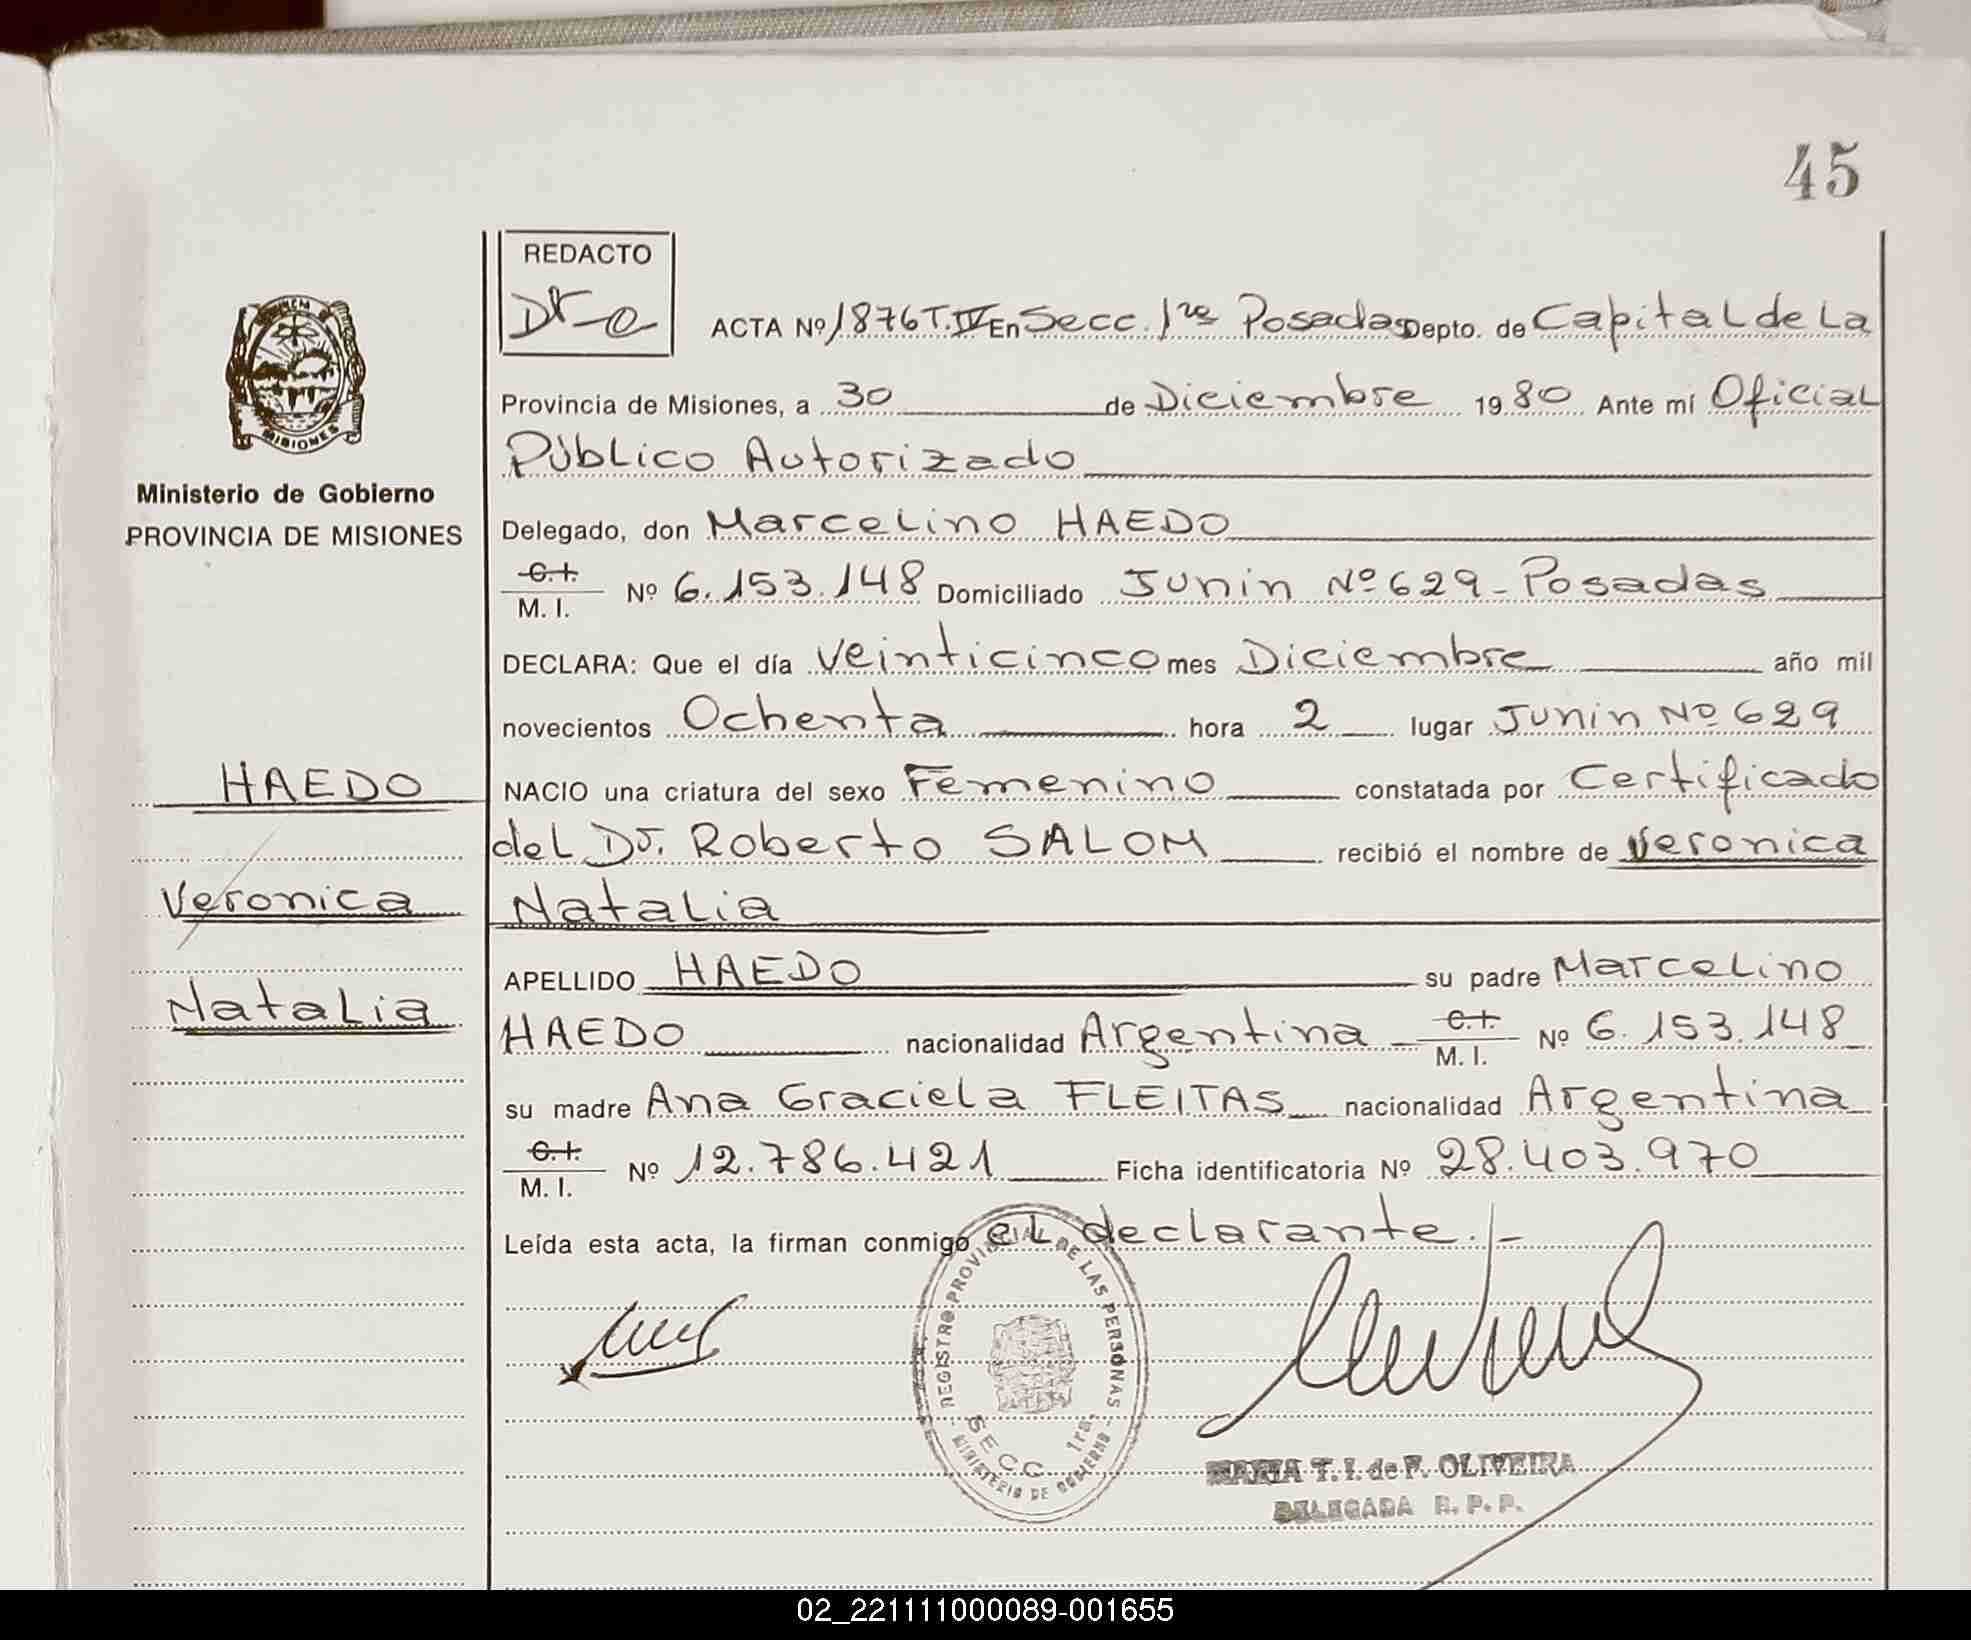 45
REDACTO
ACTA Nº 1876 T. IV En Secc. 1ra Posadas Depto. de Capital de La
Provincia de Misiones, a 30 de Diciembre 1980 Ante mí Oficial
Público Autorizado
MISIONES
Ministerio de Gobierno
PROVINCIA DE MISIONES
Delegado, don Marcelino HAEDO
C.I.
M. I. Nº 6.153.148 Domiciliado Junin Nº 629 - Posadas
DECLARA: Que el día veinticinco mes Diciembre año mil
novecientos Ochenta hora 2 lugar Junin Nº 629
HAEDO
NACIO una criatura del sexo Femenino constatada por Certificado
del Dr. Roberto SALOM recibió el nombre de Veronica
Veronica
Natalia
APELLIDO HAEDO su padre Marcelino
Natalia
HAEDO nacionalidad Argentina C.I.
M. I. Nº 6.153.148
su madre Ana Graciela FLEITAS nacionalidad Argentina
C.I.
M. I. Nº 12.786.421 Ficha identificatoria Nº 28.403.970
Leída esta acta, la firman conmigo el declarante.-
REGISTRO PROVINCIAL DE LAS PERSONAS
SECC 1ra.
MINISTERIO DE GOBIERNO
MARIA T. I. de F. OLIVEIRA
DELEGADA R. P. P.
02_221111000089-001655